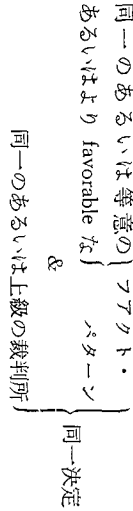 同一のあるいは等意の
あるいはより favorable な
ファクト・
パターン
&
同一のあるいは上級の裁判所
同一決定